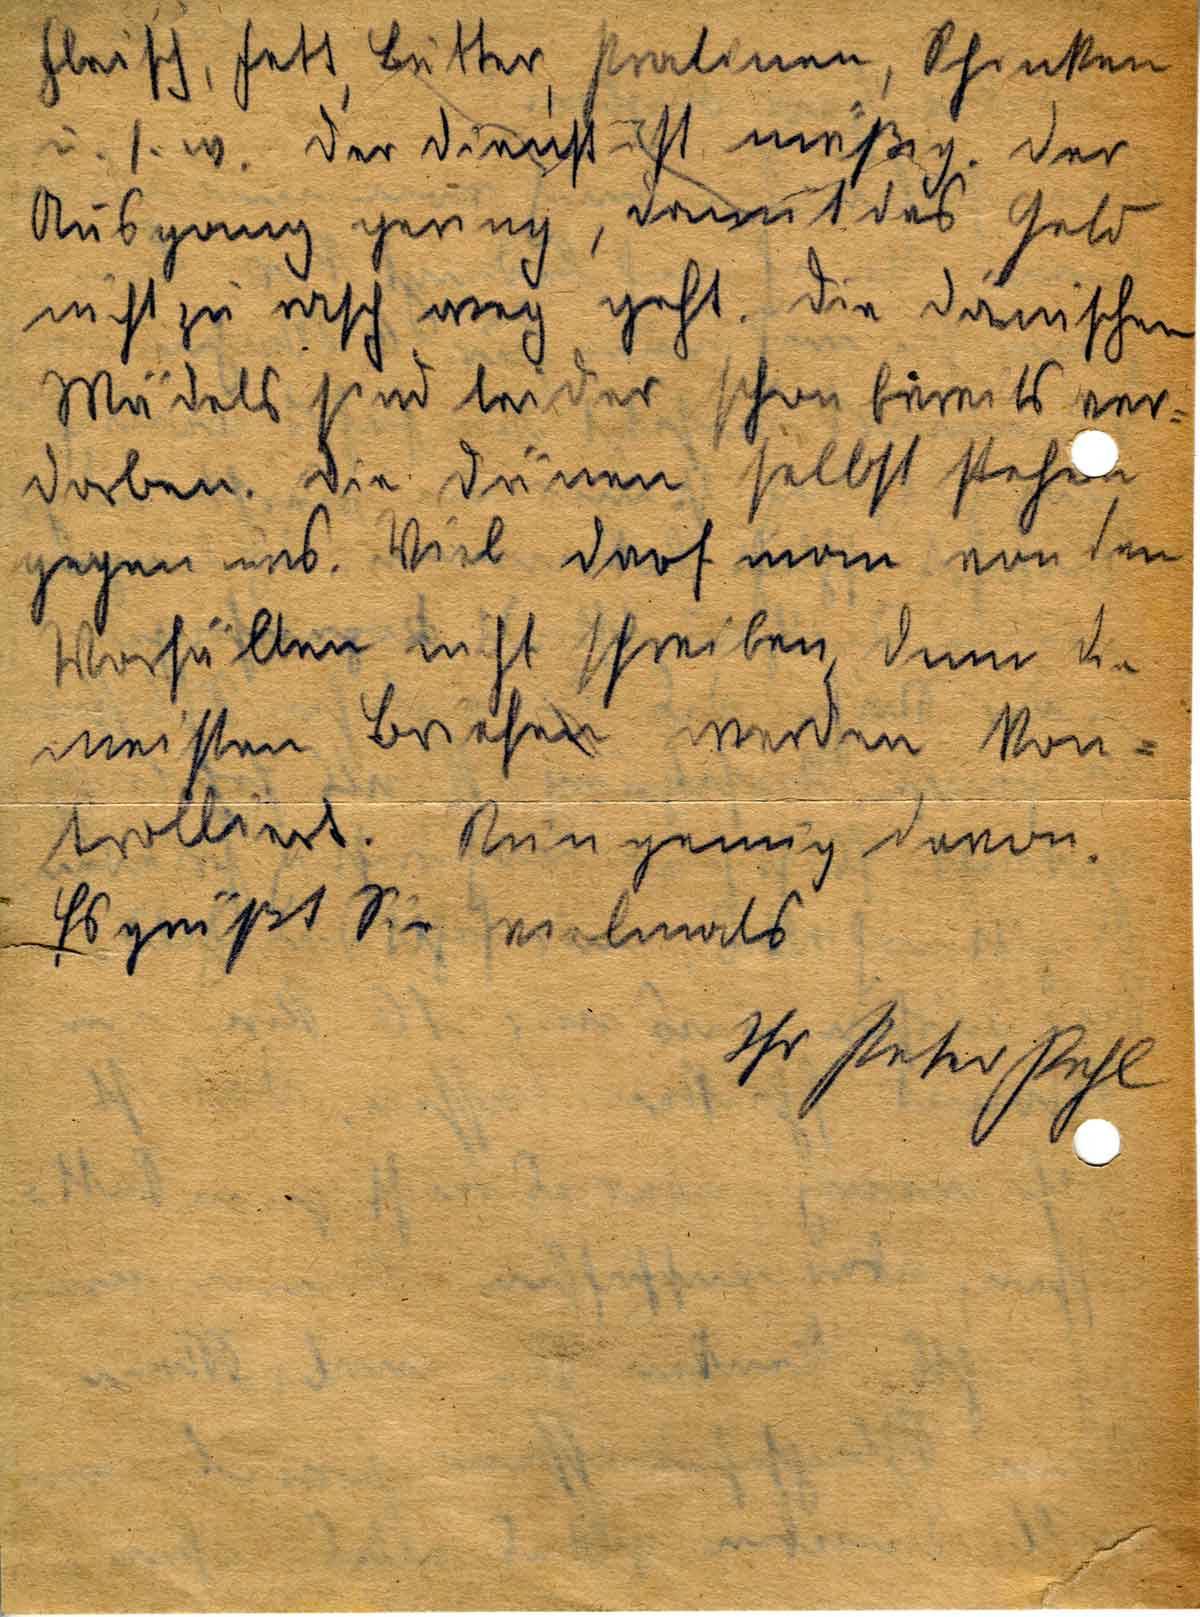 Fleisch, Fett, Butter, Pralinen, Schinken
u. s. w. Der Dienst ist mäßig. Der
Ausgang gering, damit das Geld
nicht zu rasch weg geht. Die dänischen
Mädels sind leider schon bereits ver=
dorben. Die Dänen selbst stehen
gegen uns. Viel darf man von den
Vorfällen nicht schreiben, denn die
meisten Briefen werden kon=
trolliert. Nun genug davon.
Es grüßt Sie vielmals
Ihr Peter Pehl